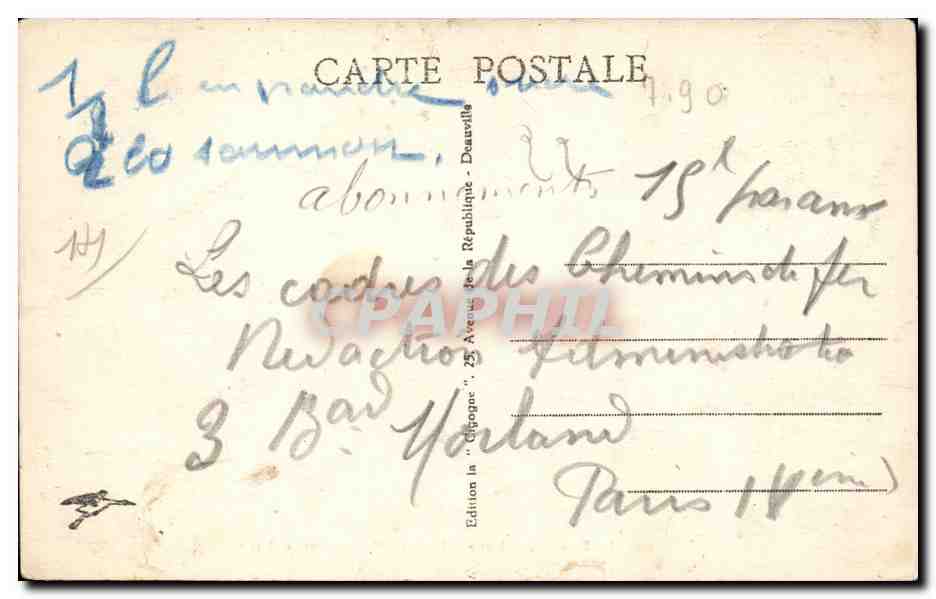 CARTE POSTALE
1
7.90
saumon.
abonnements 15f par an
141
Les cadres des Chemins de fer
Rédaction Administratio
3 Bard Morland
Paris IV eme)
Edition la "Cigogne", 25, Avenue de la République - Deauville
CPAPHIL